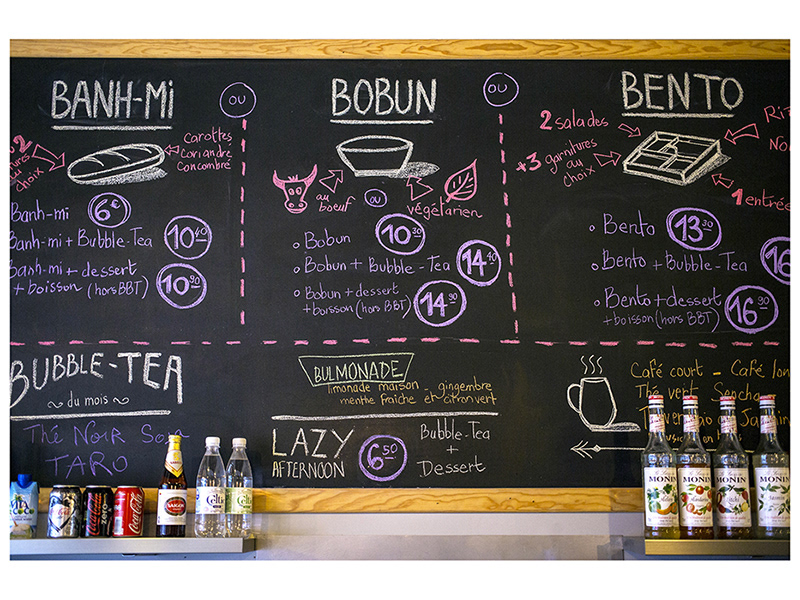 BANH-Mi
Carottes
Coriandre
Concombre
2
au
choix
Banh-mi 6€
Banh-mi + Bubble-Tea 10.40
Banh-mi + dessert
+ boisson (hors BBT) 10.90
ou
BOBUN
au
boeuf
ou
végétarien
Bobun 10.30
Bobun + Bubble-Tea 14.40
Bobun + dessert
+ boisson (hors BBT) 14.90
ou
BENTO
2 salades
+3 garnitures
au
choix
1 entrée
Bento 13.30
Bento + Bubble-Tea 16
Bento + dessert
+ boisson (hors BBT) 16.90
BUBBLE-TEA
~ du mois ~
Thé Noir
TARO
BULMONADE
limonade maison - gingembre
menthe fraîche et citron vert
LAZY
AFTERNOON
6.50
Bubble-Tea
+
Dessert
Café court - Café
Thé vert Sencha
COCO
Coca-Cola
zero
Coca-Cola
SAIGON
Celtic
MONIN
MONIN
MONIN
MONIN